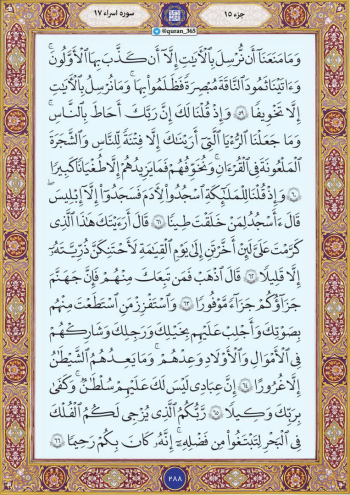 جزء ۱۵
سوره اسراء ۱۷
@quran_365
وَمَا مَنَعَنَآ أَن نُّرْسِلَ بِٱلْأَيَٰتِ إِلَّآ أَن كَذَّبَ بِهَا ٱلْأَوَّلُونَۚ
وَءَاتَيْنَا ثَمُودَ ٱلنَّاقَةَ مُبْصِرَةً فَظَلَمُوا۟ بِهَاۚ وَمَا نُرْسِلُ بِٱلْأَيَٰتِ
إِلَّا تَخْوِيفًا ۵۹ وَإِذْ قُلْنَا لَكَ إِنَّ رَبَّكَ أَحَاطَ بِٱلنَّاسِۚ
وَمَا جَعَلْنَا ٱلرُّءْيَا ٱلَّتِىٓ أَرَيْنَٰكَ إِلَّا فِتْنَةً لِّلنَّاسِ وَٱلشَّجَرَةَ
ٱلْمَلْعُونَةَ فِى ٱلْقُرْءَانِۚ وَنُخَوِّفُهُمْ فَمَا يَزِيدُهُمْ إِلَّا طُغْيَٰنًا كَبِيرًا
۶۰ وَإِذْ قُلْنَا لِلْمَلَٰٓئِكَةِ ٱسْجُدُوا۟ لِأَدَمَ فَسَجَدُوٓا۟ إِلَّآ إِبْلِيسَ
قَالَ ءَأَسْجُدُ لِمَنْ خَلَقْتَ طِينًا ۶۱ قَالَ أَرَءَيْتَكَ هَٰذَا ٱلَّذِى
كَرَّمْتَ عَلَىَّ لَئِنْ أَخَّرْتَنِ إِلَىٰ يَوْمِ ٱلْقِيَٰمَةِ لَأَحْتَنِكَنَّ ذُرِّيَّتَهُۥٓ
إِلَّا قَلِيلًا ۶۲ قَالَ ٱذْهَبْ فَمَن تَبِعَكَ مِنْهُمْ فَإِنَّ جَهَنَّمَ
جَزَآؤُكُمْ جَزَآءً مَّوْفُورًا ۶۳ وَٱسْتَفْزِزْ مَنِ ٱسْتَطَعْتَ مِنْهُم
بِصَوْتِكَ وَأَجْلِبْ عَلَيْهِم بِخَيْلِكَ وَرَجِلِكَ وَشَارِكْهُمْ
فِى ٱلْأَمْوَٰلِ وَٱلْأَوْلَٰدِ وَعِدْهُمْۚ وَمَا يَعِدُهُمُ ٱلشَّيْطَٰنُ
إِلَّا غُرُورًا ۶۴ إِنَّ عِبَادِى لَيْسَ لَكَ عَلَيْهِمْ سُلْطَٰنٌۚ وَكَفَىٰ
بِرَبِّكَ وَكِيلًا ۶۵ رَّبُّكُمُ ٱلَّذِى يُزْجِى لَكُمُ ٱلْفُلْكَ
فِى ٱلْبَحْرِ لِتَبْتَغُوا۟ مِن فَضْلِهِۦٓۚ إِنَّهُۥ كَانَ بِكُمْ رَحِيمًا ۶۶
۲۸۸